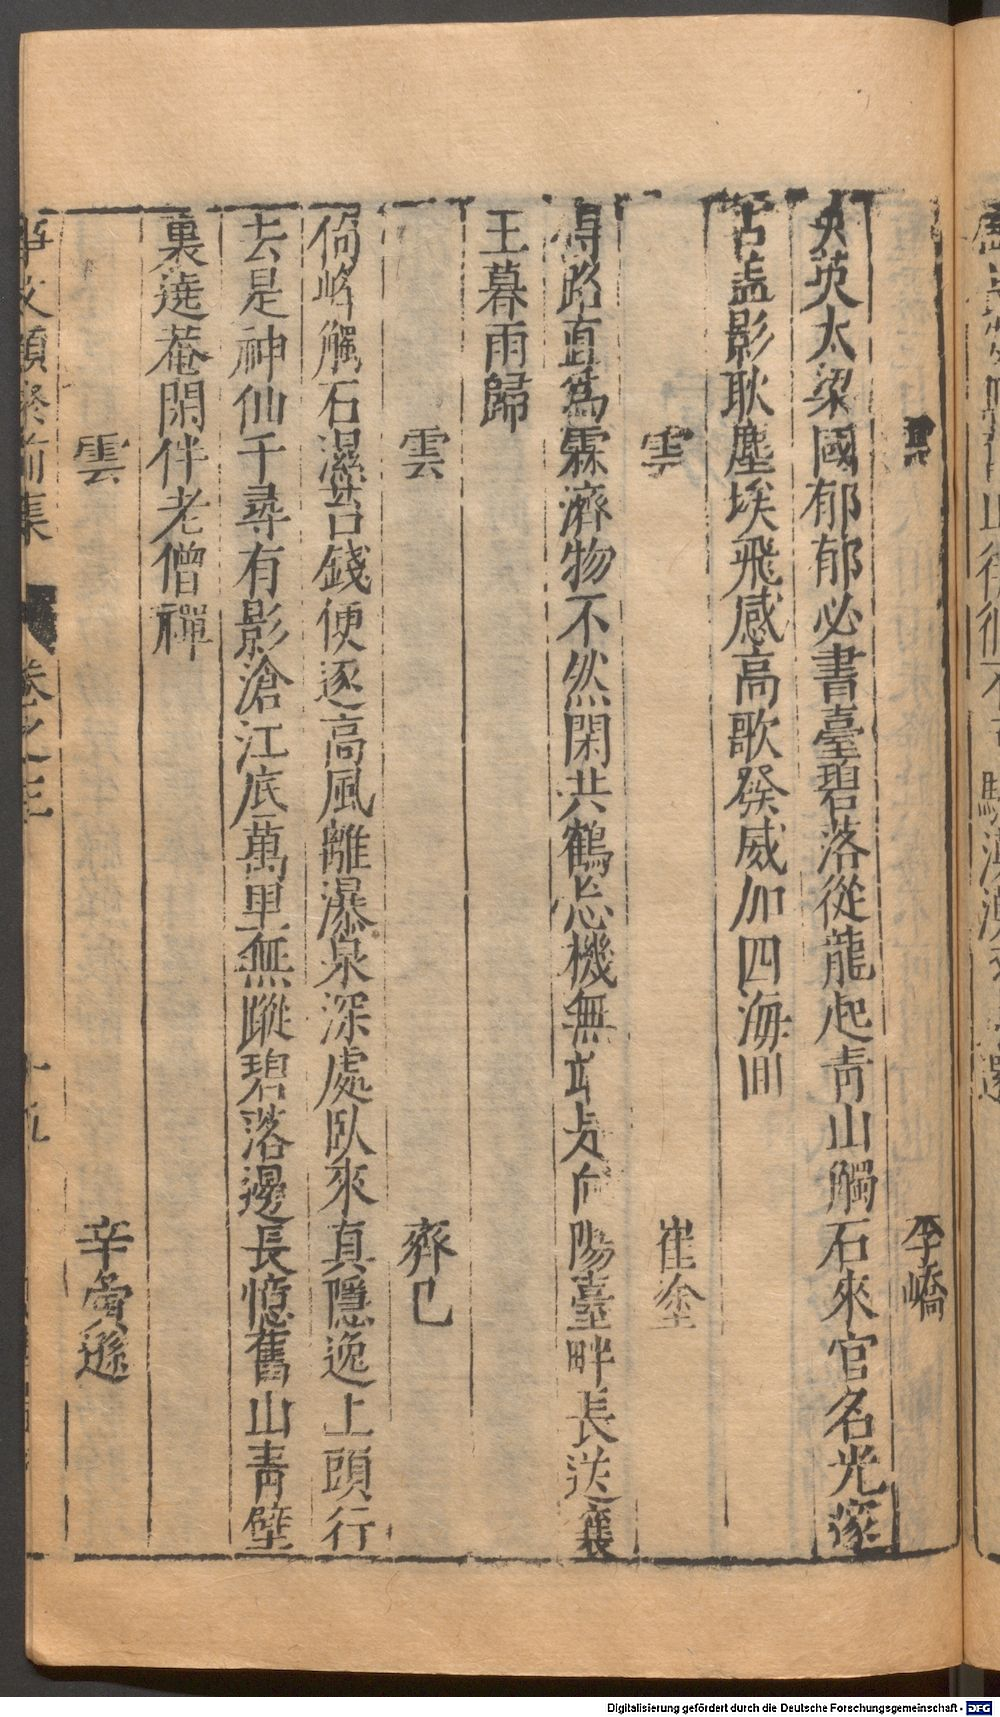 雲 李嶠
英英大梁國郁郁必書臺碧落從龍起青山觸石來官名光邃
古蓋影耿塵埃飛感高歌發威加四海囬
雲 崔塗
得路直爲霖濟物不然閑共鶴忘機無端却向陽臺畔長送襄
王暮雨歸
雲 齊己
觸石濕苔錢便逐高風離瀑泉深處臥來真隱逸上頭行
去是神仙千尋有影滄江底萬里無蹤碧落邊長憶舊山青壁
裏遶菴閑伴老僧禪
雲 辛夤遜
事文類聚前集 卷之三
Digitalisierung gefördert durch die Deutsche Forschungsgemeinschaft - DFG